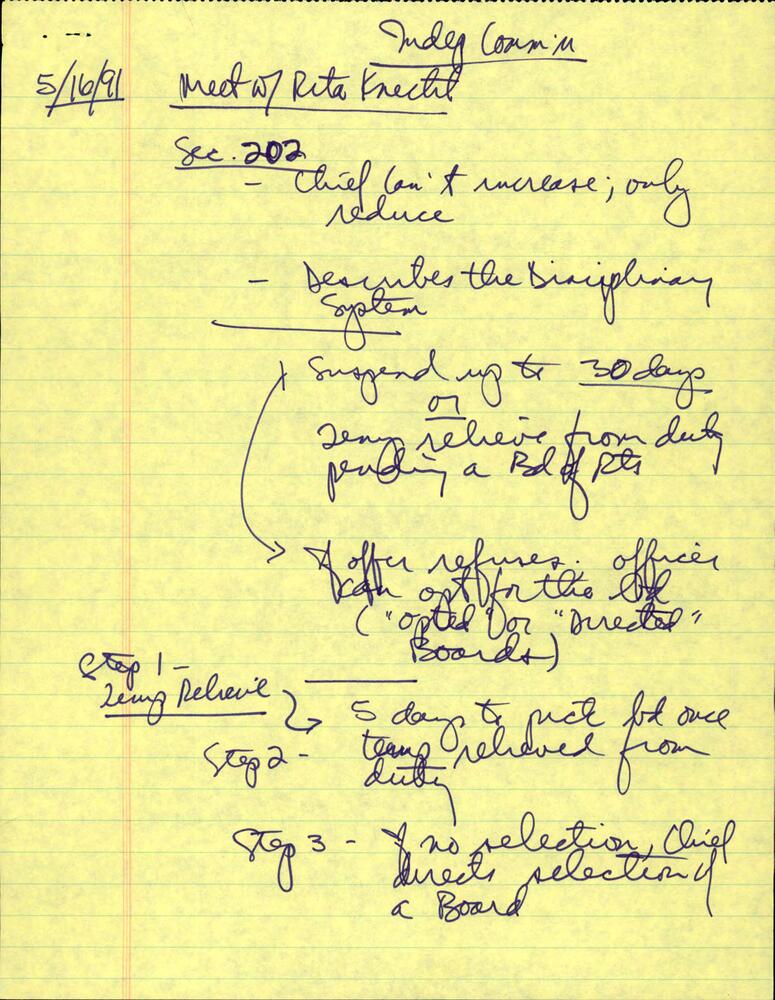 Indep Comm'n
5/16/91 Meet w/ Rita Knecht
Sec. 202
- Chief can't increase; only
reduce
- Describes the Disciplinary
System
Suspend up to 30 days
or
Temp relieve from duty
pending a Bd of Rts
If offer refuses. officer
can opt for the bd
("opted" or "Directed"
Boards)
Step 1 -
Temp Relieve
5 days to pick bd once
Step 2 - temp relieved from
duty
Step 3 - If no selection, Chief
directs selection of
a Board